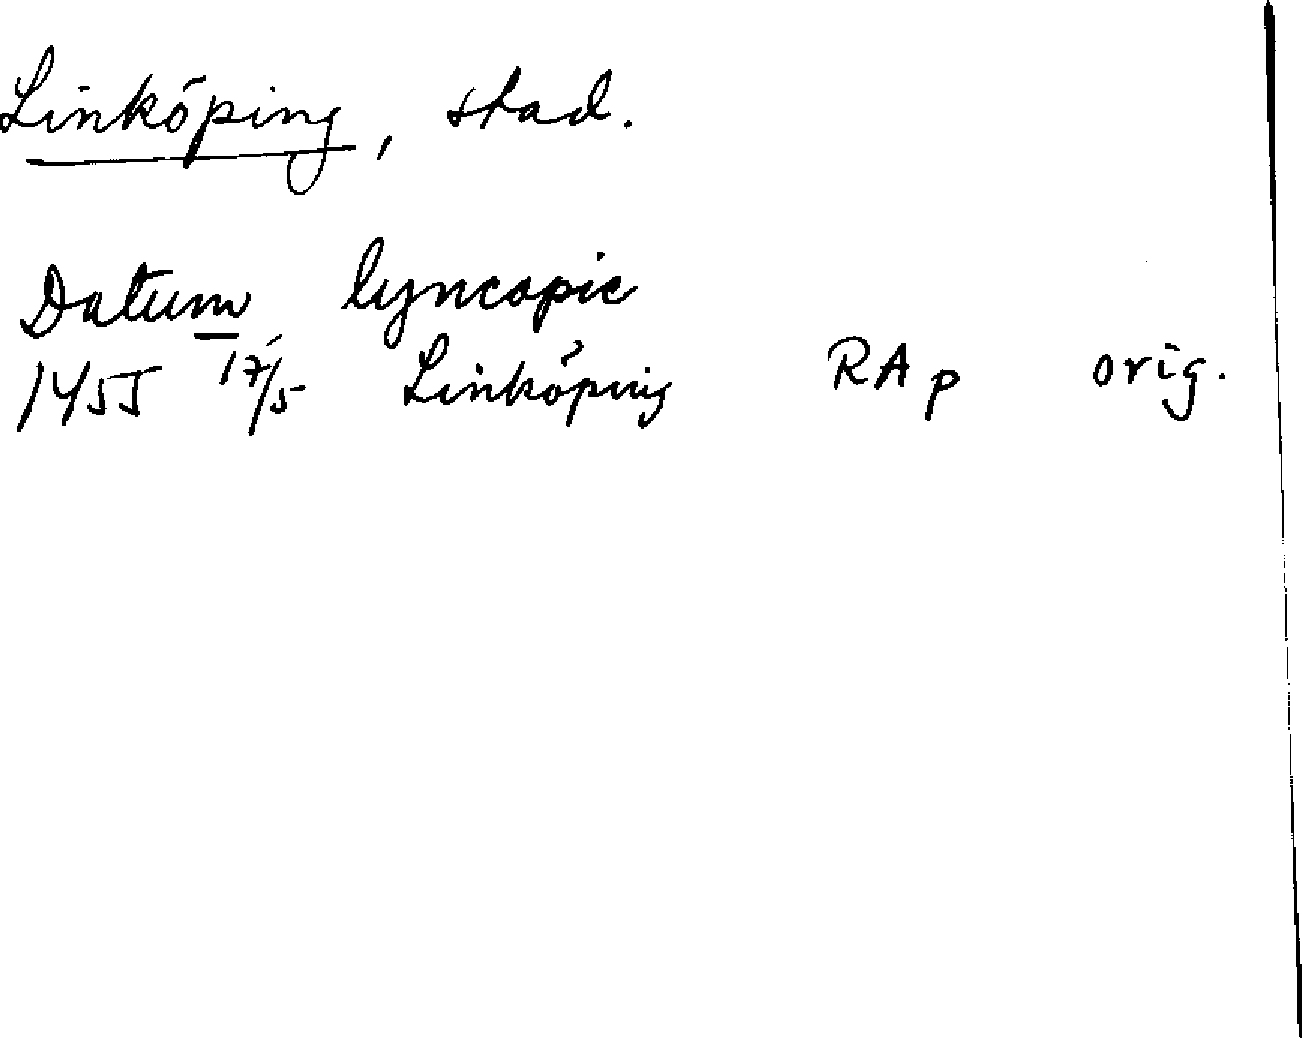 Linköping, stad.
Datum lyncopie
1455 17/5 Linköping RAp orig.